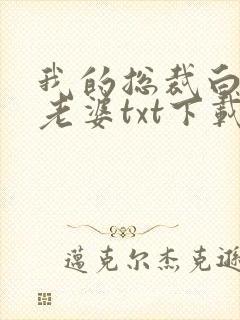 我的总裁白
老婆txt下载
蓮克尔杰克遜